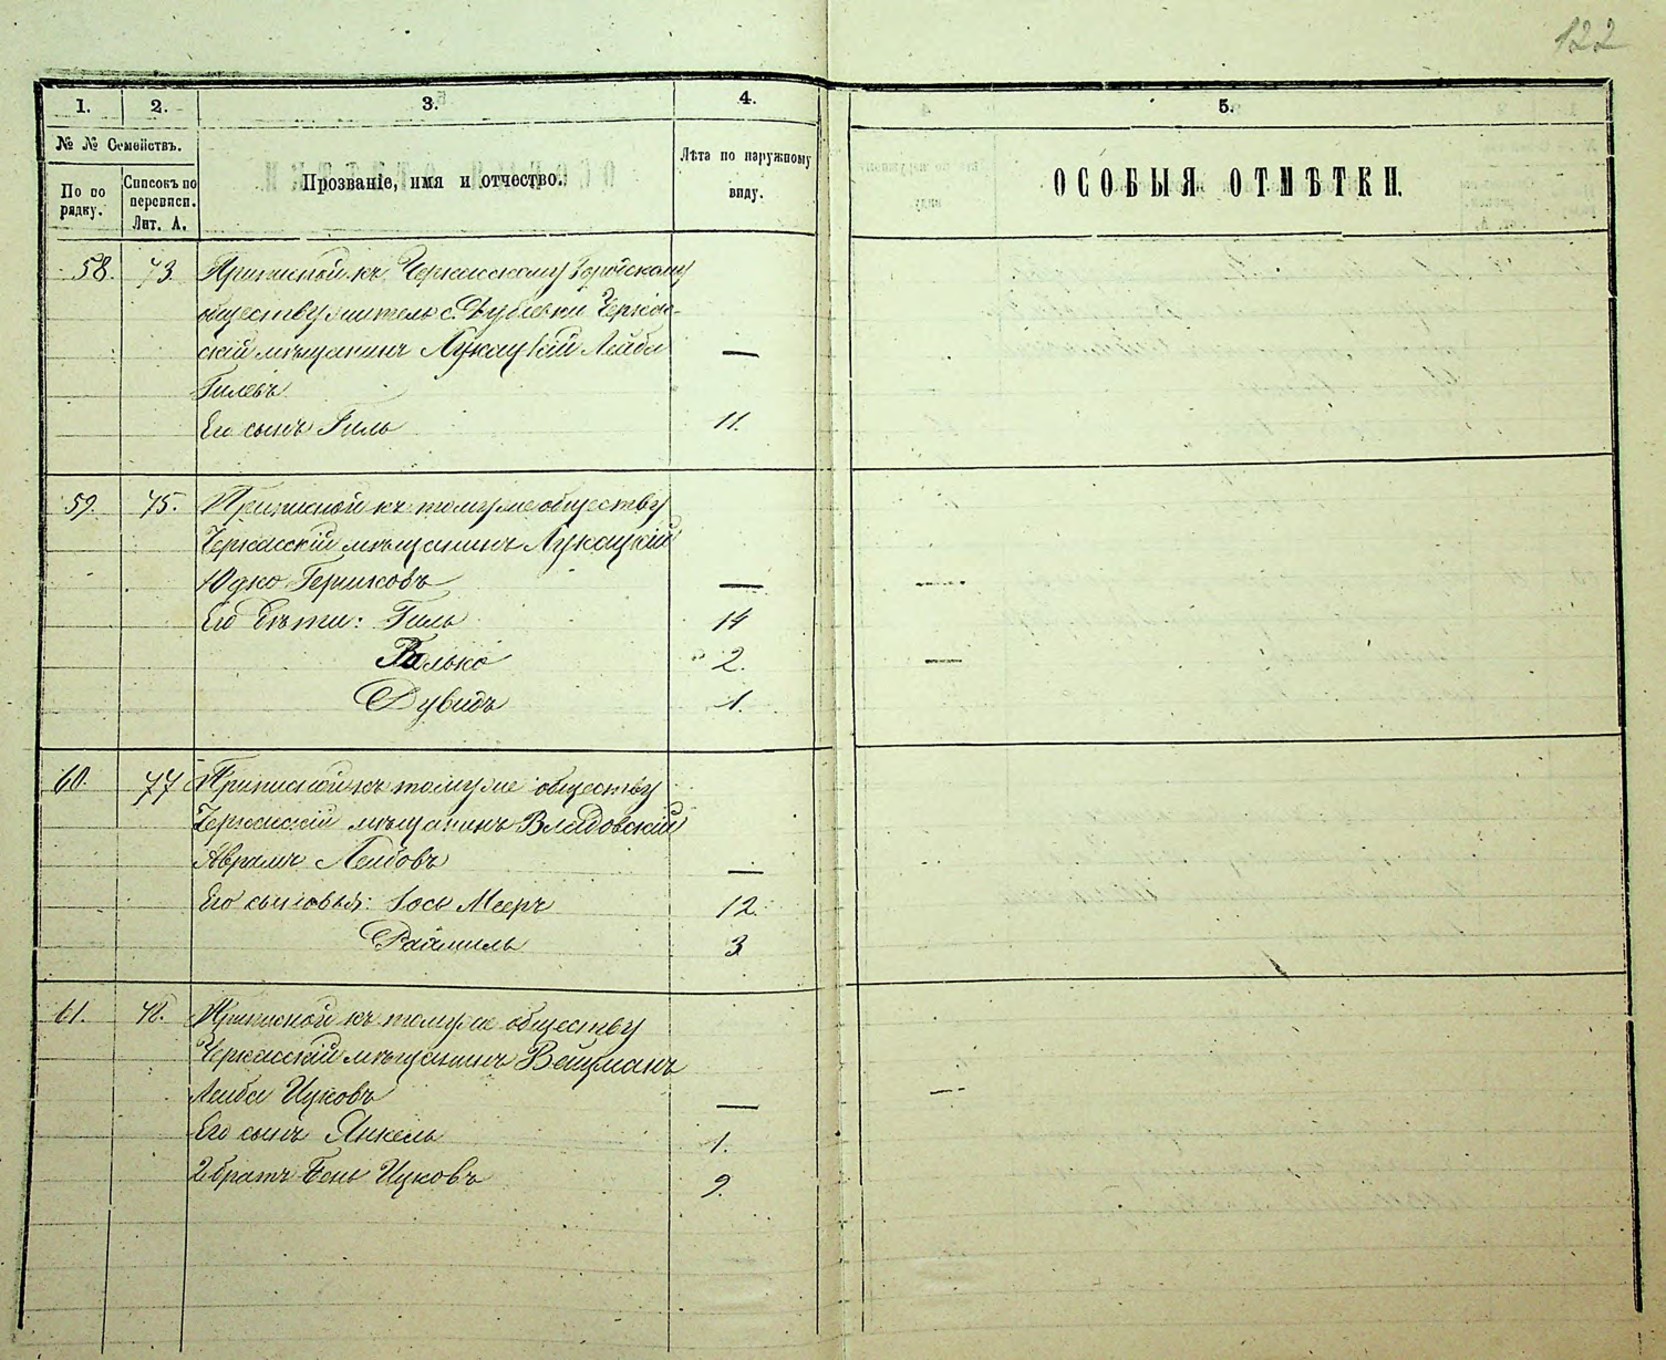 122
1. 2. 3. 4. 5.
№ № Семействъ.
По по рядку.
Списокъ по переписи. Лит. А.
Прозваніе, имя и отчество.
Лѣта по наружному виду.
ОСОБЫЯ ОТМѢТКИ.
58. 73 Приписной къ Черкасскому Городскому
обществу житель с. Дубіевки Черкас-
скій мѣщанинъ Лукацкій Лейба —
Гилевъ
Его сынъ Гиль 11.
59. 75. Приписной къ тому же обществу
Черкасскій мѣщанинъ Лукацкій
Юдко Гершковъ —
Его дѣти: Гиль 14
Велько 2.
Дувидъ 1.
60. 77 Приписной къ тому же обществу
Черкасскій мѣщанинъ Владовскій
Аврамъ Лейбовъ —
Его сыновья: Іось Мееръ 12.
3
61. 78. Приписной къ тому же обществу
Черкасскій мѣщанинъ Вейцманъ
Лейба Ицковъ —
Его сынъ Янкель 1.
2 братъ Бень Ицковъ 9.